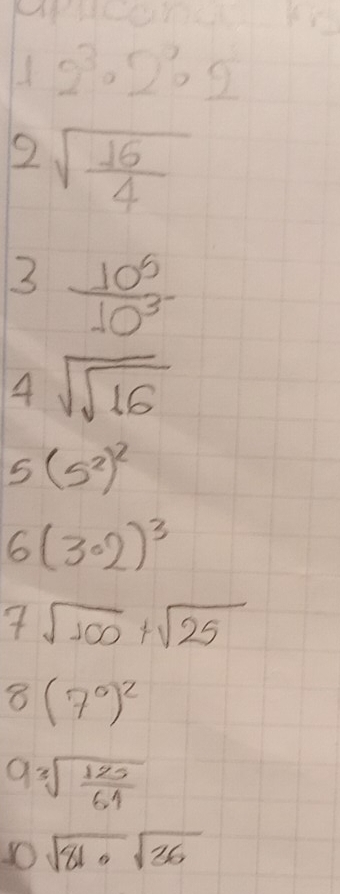 aplicando
1 2³ · 2² · 2
2 √(16/4)
3 10⁵/10³
4 √√16
5 (5²)²
6 (3·2)³
7 √100 + √25
8 (7⁰)²
9 ³√(125/64)
10 √81 · √36